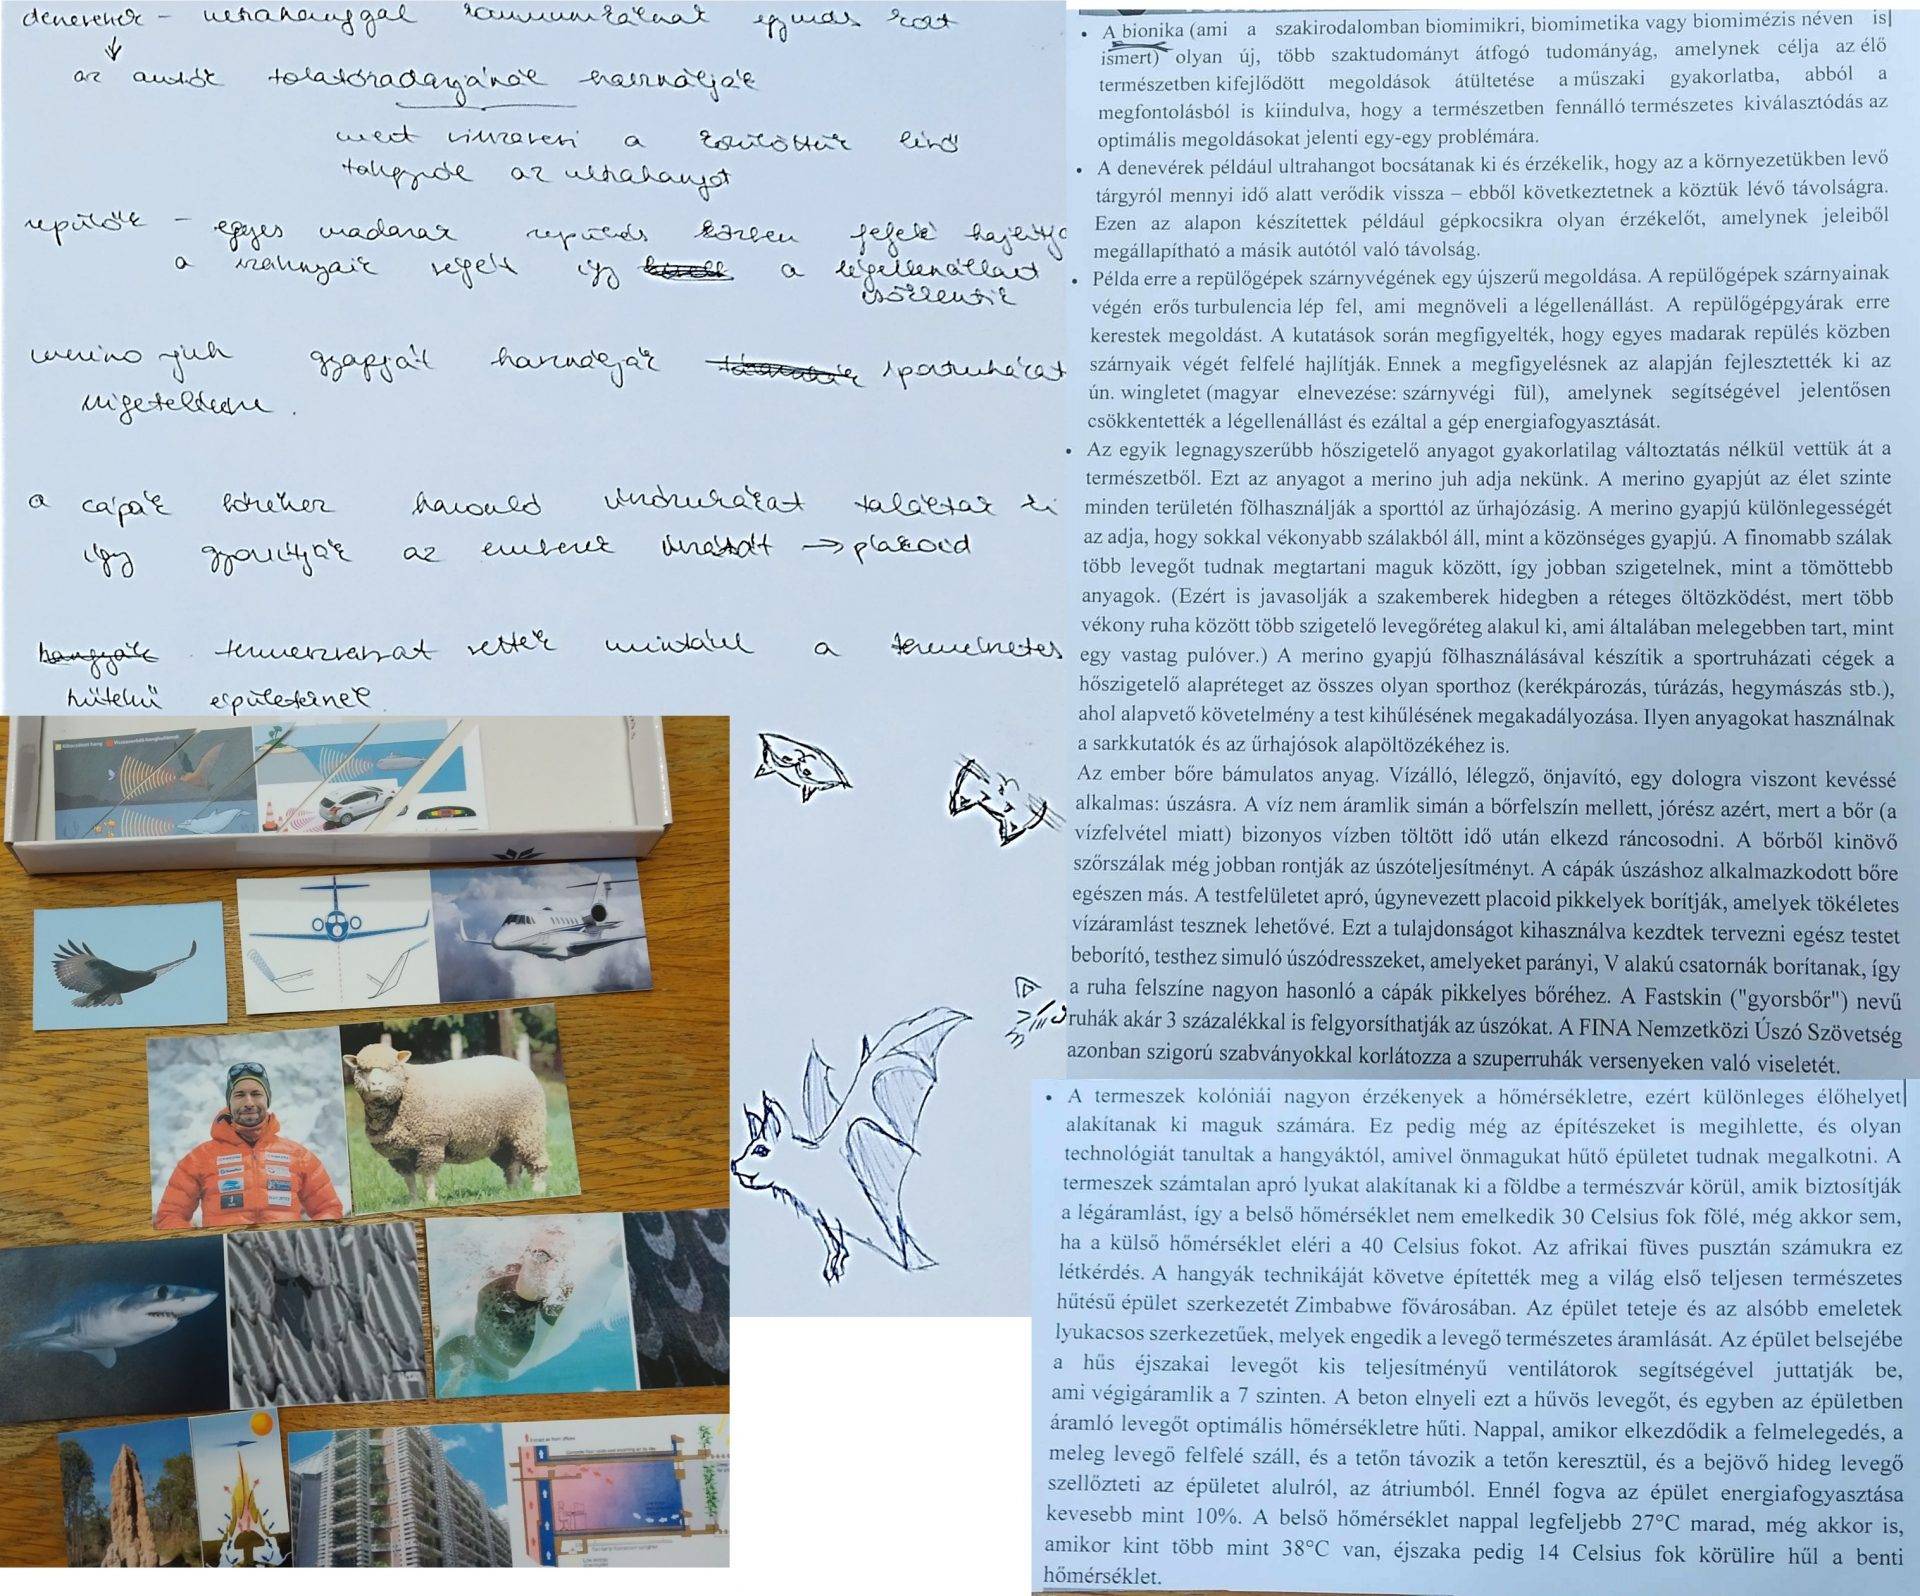 denevérek – ultrahanggal kommunikálnak egymás közt
az autók tolatóradarjánál használják
mert visszaveri a körülöttük lévő
tárgyról az ultrahangot
repülők – egyes madarak repülés közben felfelé hajlítja
a szárnyaik végét így a légellenállást
csökkentik
merino juh gyapját használják sportruhákat
szigetelésre.
a cápák bőréhez hasonló úszóruhákat találtak ki
így gyorsítják az emberek úszását → placoid
termeszvárat vették mintául a természetes
hűtésű épületeknél
A bionika (ami a szakirodalomban biomimikri, biomimetika vagy biomimézis néven is
ismert) olyan új, több szaktudományt átfogó tudományág, amelynek célja az élő
természetben kifejlődött megoldások átültetése a műszaki gyakorlatba, abból a
megfontolásból is kiindulva, hogy a természetben fennálló természetes kiválasztódás az
optimális megoldásokat jelenti egy-egy problémára.
A denevérek például ultrahangot bocsátanak ki és érzékelik, hogy az a környezetükben levő
tárgyról mennyi idő alatt verődik vissza – ebből következtetnek a köztük lévő távolságra.
Ezen az alapon készítettek például gépkocsikra olyan érzékelőt, amelynek jeleiből
megállapítható a másik autótól való távolság.
Példa erre a repülőgépek szárnyvégének egy újszerű megoldása. A repülőgépek szárnyainak
végén erős turbulencia lép fel, ami megnöveli a légellenállást. A repülőgépgyárak erre
kerestek megoldást. A kutatások során megfigyelték, hogy egyes madarak repülés közben
szárnyaik végét felfelé hajlítják. Ennek a megfigyelésnek az alapján fejlesztették ki az
ún. wingletet (magyar elnevezése: szárnyvégi fül), amelynek segítségével jelentősen
csökkentették a légellenállást és ezáltal a gép energiafogyasztását.
Az egyik legnagyszerűbb hőszigetelő anyagot gyakorlatilag változtatás nélkül vettük át a
természetből. Ezt az anyagot a merino juh adja nekünk. A merino gyapjút az élet szinte
minden területén fölhasználják a sporttól az űrhajózásig. A merino gyapjú különlegességét
az adja, hogy sokkal vékonyabb szálakból áll, mint a közönséges gyapjú. A finomabb szálak
több levegőt tudnak megtartani maguk között, így jobban szigetelnek, mint a tömöttebb
anyagok. (Ezért is javasolják a szakemberek hidegben a réteges öltözködést, mert több
vékony ruha között több szigetelő levegőréteg alakul ki, ami általában melegebben tart, mint
egy vastag pulóver.) A merino gyapjú fölhasználásával készítik a sportruházati cégek a
hőszigetelő alapréteget az összes olyan sporthoz (kerékpározás, túrázás, hegymászás stb.),
ahol alapvető követelmény a test kihűlésének megakadályozása. Ilyen anyagokat használnak
a sarkkutatók és az űrhajósok alapöltözékéhez is.
Az ember bőre bámulatos anyag. Vízálló, lélegző, önjavító, egy dologra viszont kevéssé
alkalmas: úszásra. A víz nem áramlik simán a bőrfelszín mellett, jórész azért, mert a bőr (a
vízfelvétel miatt) bizonyos vízben töltött idő után elkezd ráncosodni. A bőrből kinövő
szőrszálak még jobban rontják az úszóteljesítményt. A cápák úszáshoz alkalmazkodott bőre
egészen más. A testfelületet apró, úgynevezett placoid pikkelyek borítják, amelyek tökéletes
vízáramlást tesznek lehetővé. Ezt a tulajdonságot kihasználva kezdtek tervezni egész testet
beborító, testhez simuló úszódresszeket, amelyeket parányi, V alakú csatornák borítanak, így
a ruha felszíne nagyon hasonló a cápák pikkelyes bőréhez. A Fastskin ("gyorsbőr") nevű
ruhák akár 3 százalékkal is felgyorsíthatják az úszókat. A FINA Nemzetközi Úszó Szövetség
azonban szigorú szabványokkal korlátozza a szuperruhák versenyeken való viseletét.
A termeszek kolóniái nagyon érzékenyek a hőmérsékletre, ezért különleges élőhelyet
alakítanak ki maguk számára. Ez pedig még az építészeket is megihlette, és olyan
technológiát tanultak a hangyáktól, amivel önmagukat hűtő épületet tudnak megalkotni. A
termeszek számtalan apró lyukat alakítanak ki a földbe a természvár körül, amik biztosítják
a légáramlást, így a belső hőmérséklet nem emelkedik 30 Celsius fok fölé, még akkor sem,
ha a külső hőmérséklet eléri a 40 Celsius fokot. Az afrikai füves pusztán számukra ez
létkérdés. A hangyák technikáját követve építették meg a világ első teljesen természetes
hűtésű épület szerkezetét Zimbabwe fővárosában. Az épület teteje és az alsóbb emeletek
lyukacsos szerkezetűek, melyek engedik a levegő természetes áramlását. Az épület belsejébe
a hűs éjszakai levegőt kis teljesítményű ventilátorok segítségével juttatják be,
ami végigáramlik a 7 szinten. A beton elnyeli ezt a hűvös levegőt, és egyben az épületben
áramló levegőt optimális hőmérsékletre hűti. Nappal, amikor elkezdődik a felmelegedés, a
meleg levegő felfelé száll, és a tetőn távozik a tetőn keresztül, és a bejövő hideg levegő
szellőzteti az épületet alulról, az átriumból. Ennél fogva az épület energiafogyasztása
kevesebb mint 10%. A belső hőmérséklet nappal legfeljebb 27°C marad, még akkor is,
amikor kint több mint 38°C van, éjszaka pedig 14 Celsius fok körülire hűl a benti
hőmérséklet.